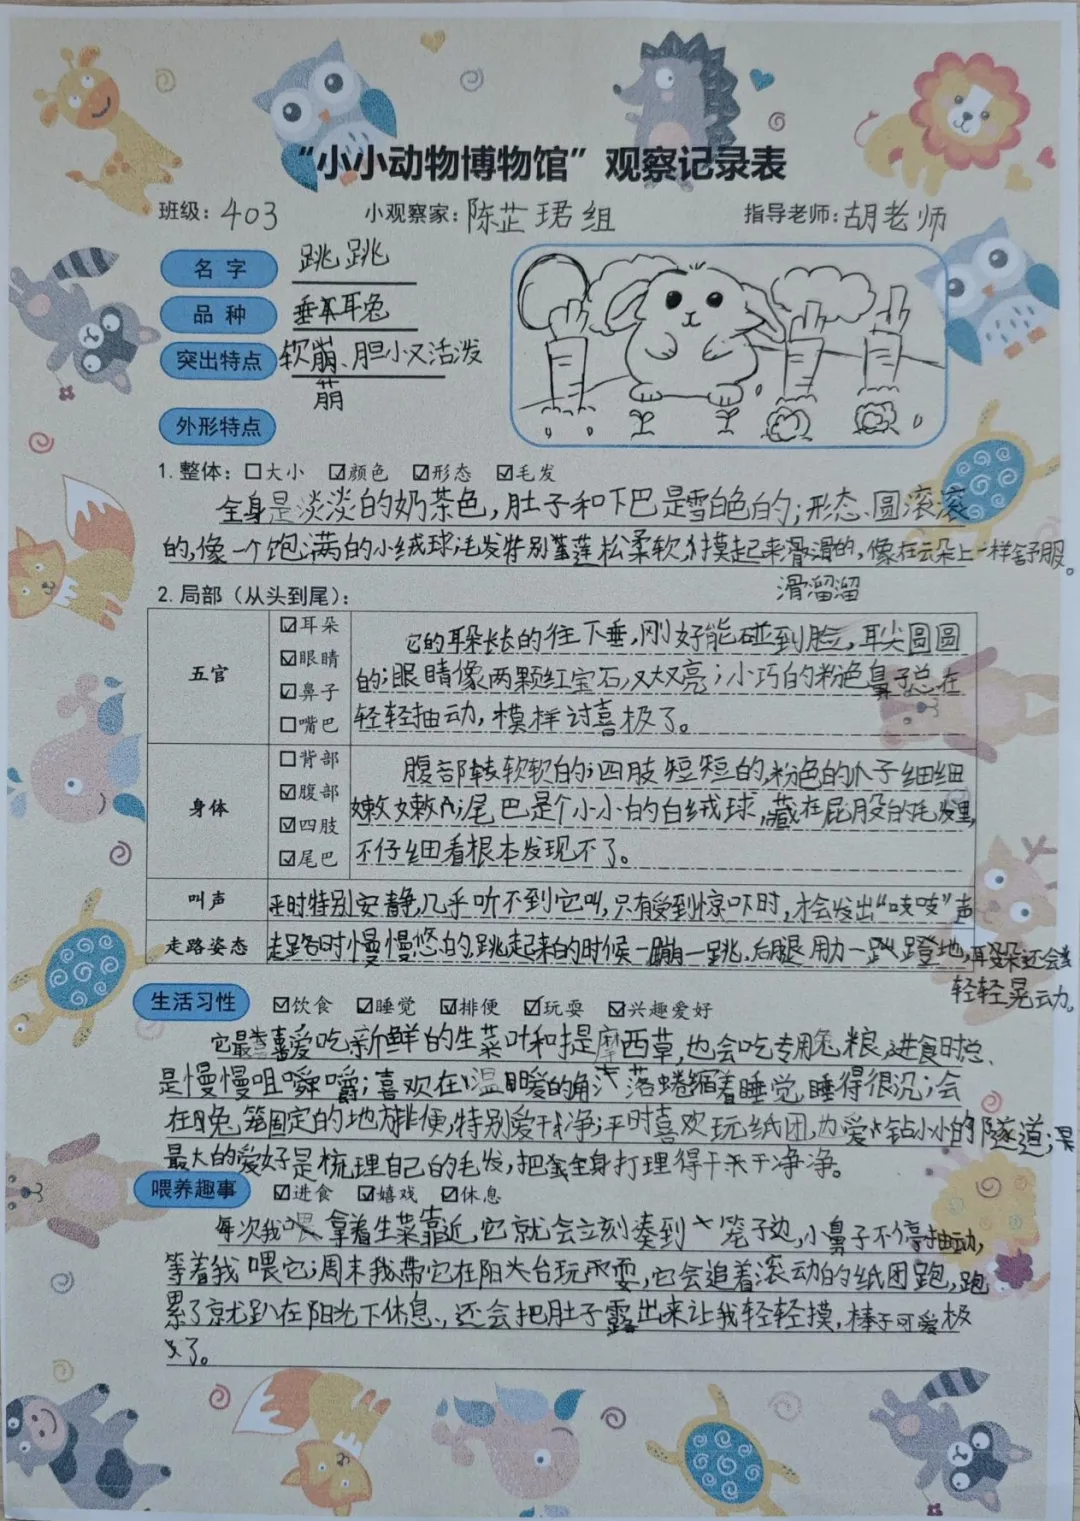 “小小动物博物馆”观察记录表
班级：403 小观察家：陈芷珺组 指导老师：胡老师
名字 跳跳
品种 垂耳兔
突出特点 软萌、胆小又活泼
萌
外形特点
1.整体：□大小 ☑颜色 ☑形态 ☑毛发
全身是淡淡的奶茶色，肚子和下巴是雪白色的；形态圆滚滚
的，像一个饱满的小绒球；毛发特别蓬松柔软，摸起来滑滑的，像在云朵上一样舒服。
滑溜溜
2.局部（从头到尾）：
五官
☑耳朵
☑眼睛
☑鼻子
□嘴巴
它的耳朵长长的往下垂，刚好能碰到脸，耳尖圆圆
的；眼睛像两颗红宝石，又大又亮；小巧的粉色鼻子总在
轻轻抽动，模样讨喜极了。
身体
□背部
☑腹部
☑四肢
☑尾巴
腹部软软的；四肢短短的，粉色的爪子细细
嫩嫩的；尾巴是个小小的白绒球，藏在屁股的毛发里，
不仔细看根本发现不了。
叫声 平时特别安静，几乎听不到它叫，只有受到惊吓时，才会发出“吱吱”声
走路姿态 走路时慢慢悠的，跳起来的时候一蹦一跳，后腿用力一蹬地，耳朵还会
轻轻晃动。
生活习性 ☑饮食 ☑睡觉 ☑排便 ☑玩耍 ☑兴趣爱好
它最喜爱吃新鲜的生菜叶和提摩西草，也会吃专用兔粮，进食时总
是慢慢咀嚼；喜欢在温暖的角落蜷缩着睡觉，睡得很沉；会
在兔笼固定的地方排便，特别爱干净；平时喜欢玩纸团，也爱钻小小的隧道；
最大的爱好是梳理自己的毛发，把全身打理得干干净净。
喂养趣事 ☑进食 ☑嬉戏 ☑休息
每次我拿着生菜靠近，它就会立刻凑到笼子边，小鼻子不停抽动，
等着我喂它；周末我带它在阳台玩耍，它会追着滚动的纸团跑，跑
累了就趴在阳光下休息，还会把肚子露出来让我轻轻摸，可爱极
了。